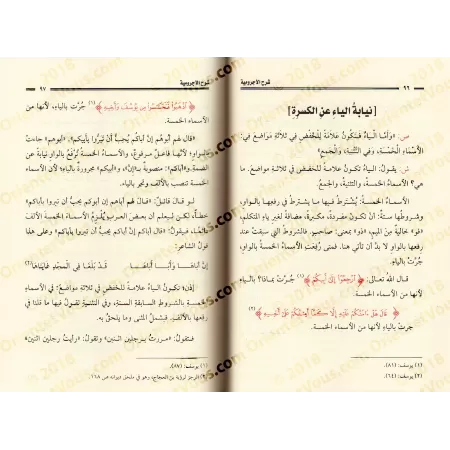 شرح الآجرومية
٩٦
[نيابةُ الياءِ عنِ الكسرة]
س: «وَأَمَّا الْيَاءُ فَتَكُونُ عَلَامَةً لِلْخَفْضِ فِي ثَلَاثَةِ مَوَاضِعَ: فِي
الْأَسْمَاءِ الْخَمْسَةِ، وَفِي التَّثْنِيَةِ، وَالْجَمْعِ»
ش: يقول: الياءُ تكونُ علامةً للخفض في ثلاثةِ مواضعَ. ما
هي؟ الأسماءُ الخمسةُ، والتثنيةُ، والجمعُ.
الأسماءُ الخمسةُ: يُشْتَرَطُ فيها ما يشترطُ في رفعِها بالواو،
وشروطُها ستةٌ: أنْ تكونَ مفردةً، مكبرةً، مضافةً لغيرِ ياءِ المتكلمِ،
«فو» خاليةً مِنَ الميمِ، «ذو» بمعنى: صاحبٍ. فالشروطُ التي سبقت عند
رفعها بالواو لا بدَّ أن تأتي هنا. فمتى رُفِعَتِ الأسماءُ الخمسةُ بالواو،
جُرَّتْ بالياءِ.
قال اللهُ تعالى: ﴿ ارْجِعُوا إِلَى أَبِيكُمْ ﴾(١) جُرَّتْ بماذا؟ بالياءِ
لأنها من الأسماءِ الخمسةِ.
﴿ قَالَ هَلْ آمَنُكُمْ عَلَيْهِ إِلَّا كَمَا أَمِنتُكُمْ عَلَى أَخِيهِ ﴾(٢)
جرتْ بالياءِ لأنها من الأسماء الخمسة.
(١) يوسف: (٨١).
(٢) يوسف: (٦٤).
شرح الآجرومية
٩٧
﴿ اذْهَبُوا فَتَحَسَّسُوا مِن يُوسُفَ وَأَخِيهِ ﴾(١) جُرَّتْ بالياءِ، لأنها من
الأسماء الخمسة.
«قال لهم أبوهم إنَّ أباكم يُحِبُّ أن تبروا بأبيكم». «أبوهم» جاءتْ
بالواو؛ لأنها فاعلٌ مرفوعٌ، والأسماءُ الخمسةُ تُرْفَعُ بالواو نيابةً عن
الضمةِ. و«أباكم»: منصوبةٌ بـ«إنَّ»، و«أبيكم» مجرورةٌ بالباء. فالأسماءُ
الخمسةُ تنصب بالألف وتجر بالياء.
لو قال قائلٌ: «قالَ لهم أباهم إن أباكم يحبُّ أن تبروا بأباكم»
خطأٌ، لكن ليعلم أن بعضَ العربِ يُلْزِمُ الأسماءَ الخمسةَ الألفَ
دائمًا، فيقولُ: «قال أباكم إنَّ أباكم يحبُّ أن تبروا بأباكم» وعلى هذا
قولُ الشاعرِ:
إِنَّ أَبَاهَـا وَأَبَـا أَبَاهَـا قَـدْ بَلَغَـا فِي الْمَجْدِ غَايَتَاهَا(٢)
إذن؛ تكون الياءُ علامةً للخفضِ في ثلاثةِ مواضعَ: في الأسماءِ
الخمسةِ بالشروطِ السابقةِ الستةِ، وفي التثنيةِ نقولُ فيها ما قلنا في
رفعِها بالألفِ، فيشملُ المثنى وما يلحقُ به.
فتقولُ: «مررتُ برجلينِ اثنينِ» وتقولُ: «رأيتُ رجلينِ اثنينِ»
(١) يوسف: (٨٧).
(٢) الرجز لرؤبة بن العجاج، وهو في ملحق ديوانه ص ١٦٨.